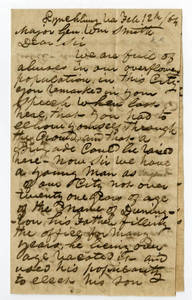 Lynchburg Va Feb 12th / 64
Major Gen Wm Smith
Dear Sir
We are full of
abuses in our overflown
population, in this City
you remarked in your
Speech when last
here, that you had to
echouse yourself through
the crowd and that a
Brigade could be raised
here - Now Sir we have
a young man as
of our City not over
twenty one years of age
of the name of
his Father filled
the office for many
years, he being over
age vacated it and
used his popularity
to elect his Son